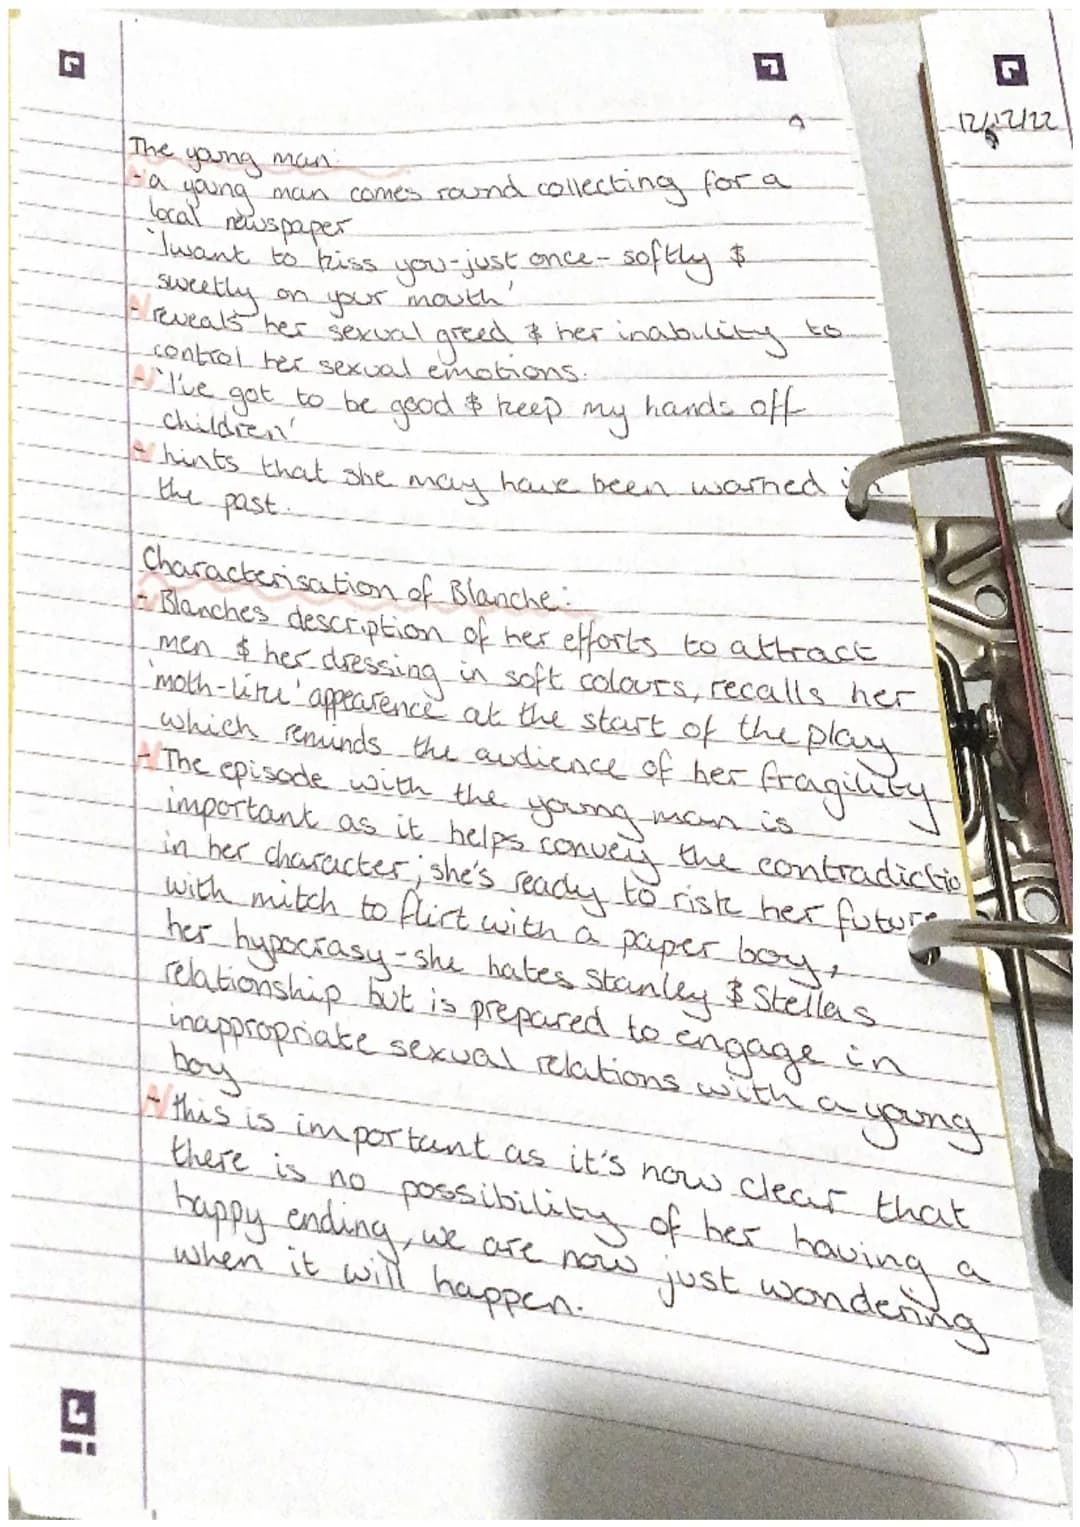 12/12/22
The young man:
- a young man comes round collecting for a
local newspaper
'I want to kiss you-just once- softly &
sweetly on your mouth'
- reveals her sexual greed & her inability to
control her sexual emotions.
- 'I've got to be good & keep my hands off
children'
- hints that she may have been warned in
the past.
Characterisation of Blanche:
- Blanches description of her efforts to attract
men & her dressing in soft colours, recalls her
'moth-like' appearence at the start of the play
which reminds the audience of her fragility
- The episode with the young man is
important as it helps convey the contradictio
in her character; she's ready to risk her future
with mitch to flirt with a paper boy,
her hypocrasy - she hates Stanley & Stellas
relationship but is prepared to engage in
inappropriate sexual relations with a young
boy
- this is important as it's now clear that
there is no possibility of her having a
happy ending, we are now just wondering
when it will happen.